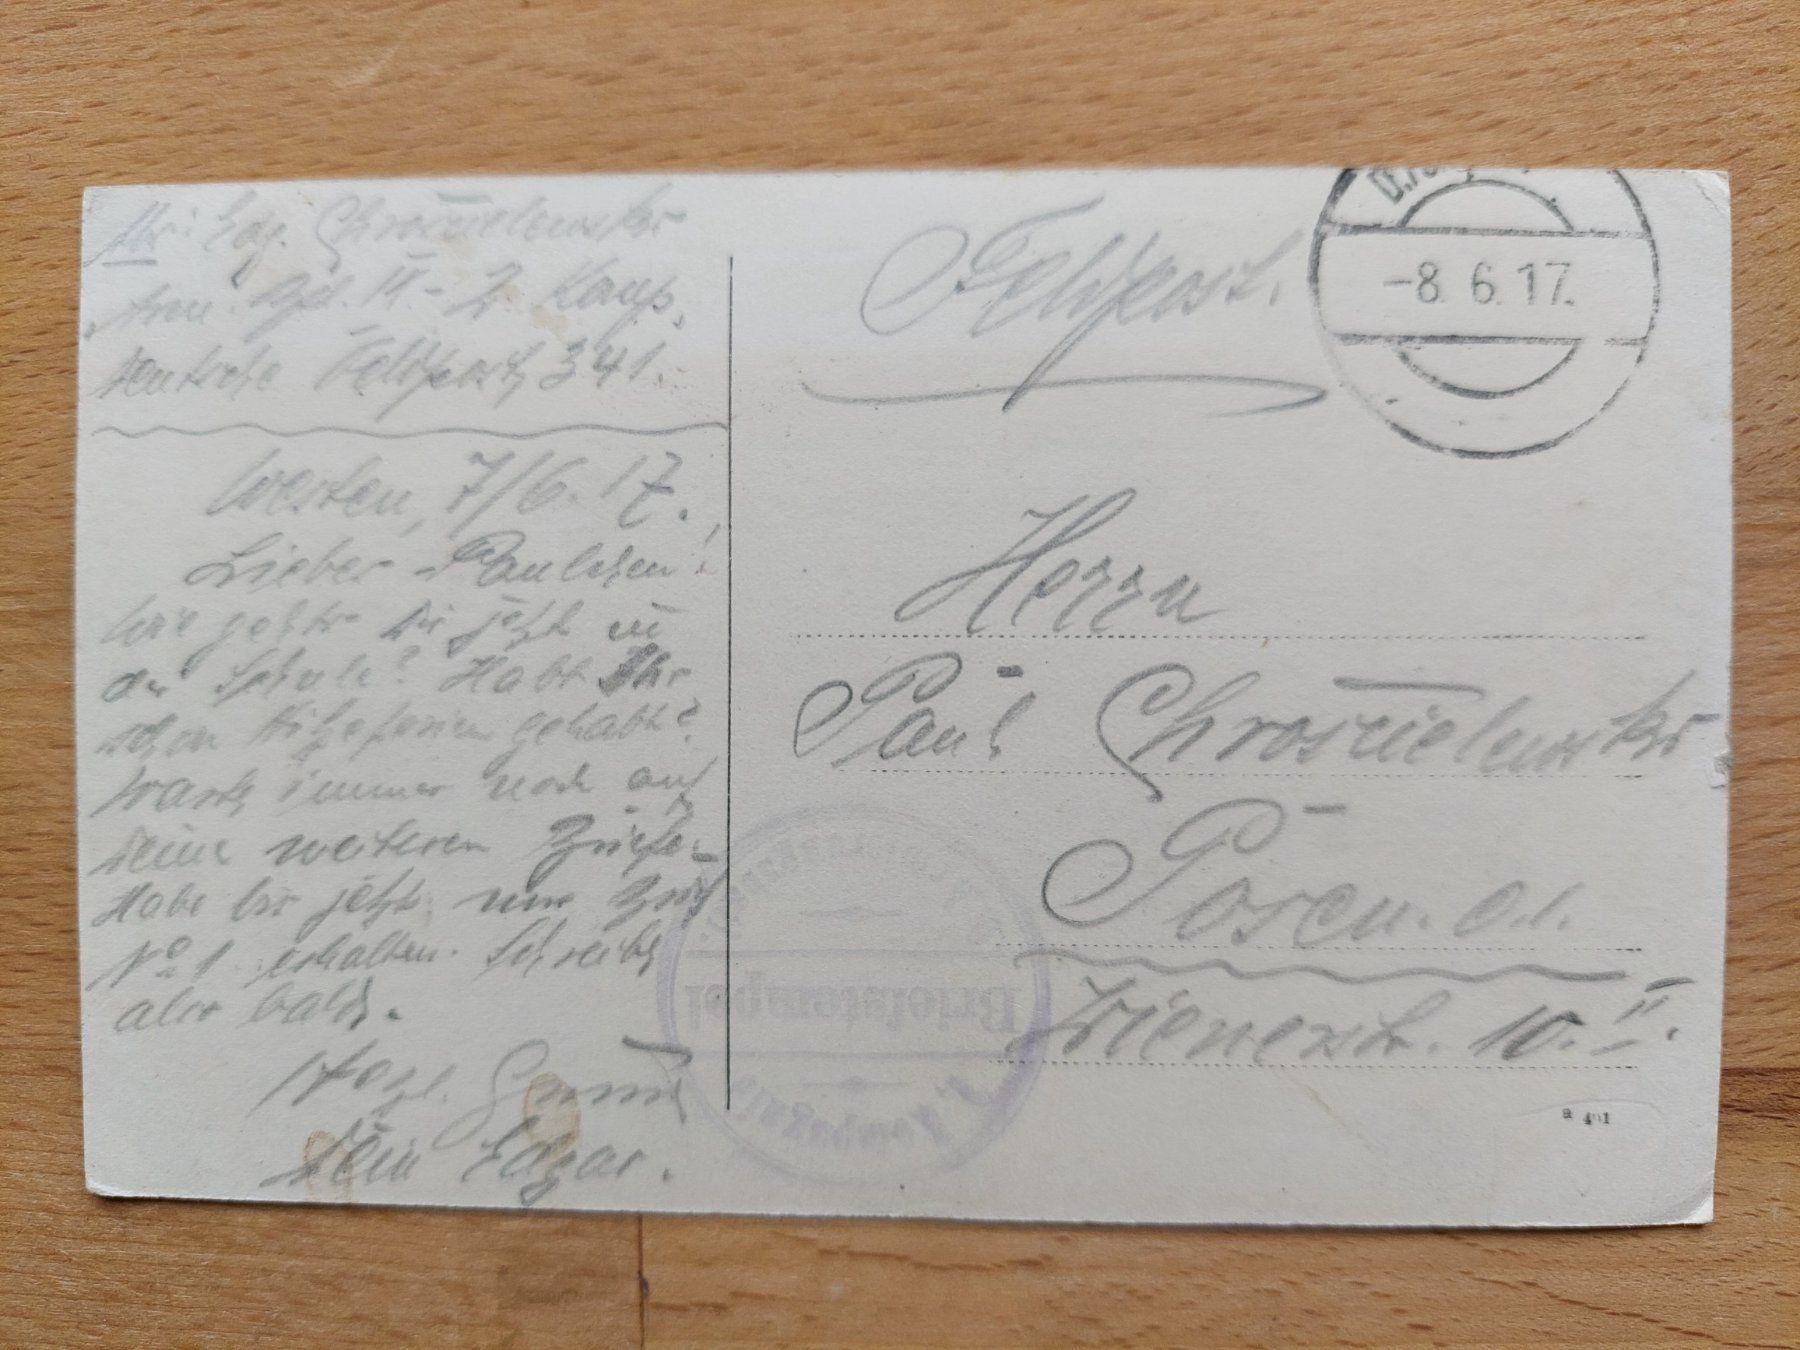 Abs: Edg. Chroscielewski
Arm. Btl. II - 2. Komp.
Deutsche Feldpost 341.
Westen, 7/6. 17.
Lieber Paulchen!
Wie geht's Dir jetzt in
der Schule? Habt Ihr
schon Hitzeferien gehabt?
Warte immer noch auf
Deine weiteren Briefe.
Habe bis jetzt nur Brief
No 1 erhalten. Schreibe
also bald.
Herzl. Gruß
Dein Edgar.
Feldpost.
-8. 6. 17.
Herrn
Paul Chroscielewski
Posen. O.1.
Wienerstr. 10. II.
Briefstempel
2. Kompagnie
a 401